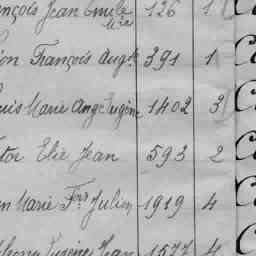 nçois Jean Emile Mie 126 1
ion François Augte 391 1
uis Marie Ange Eugène 1402 3
ctor Elie Jean 593 2
n Marie Fois Julien 1919 4
Eugène Jean 1577 4